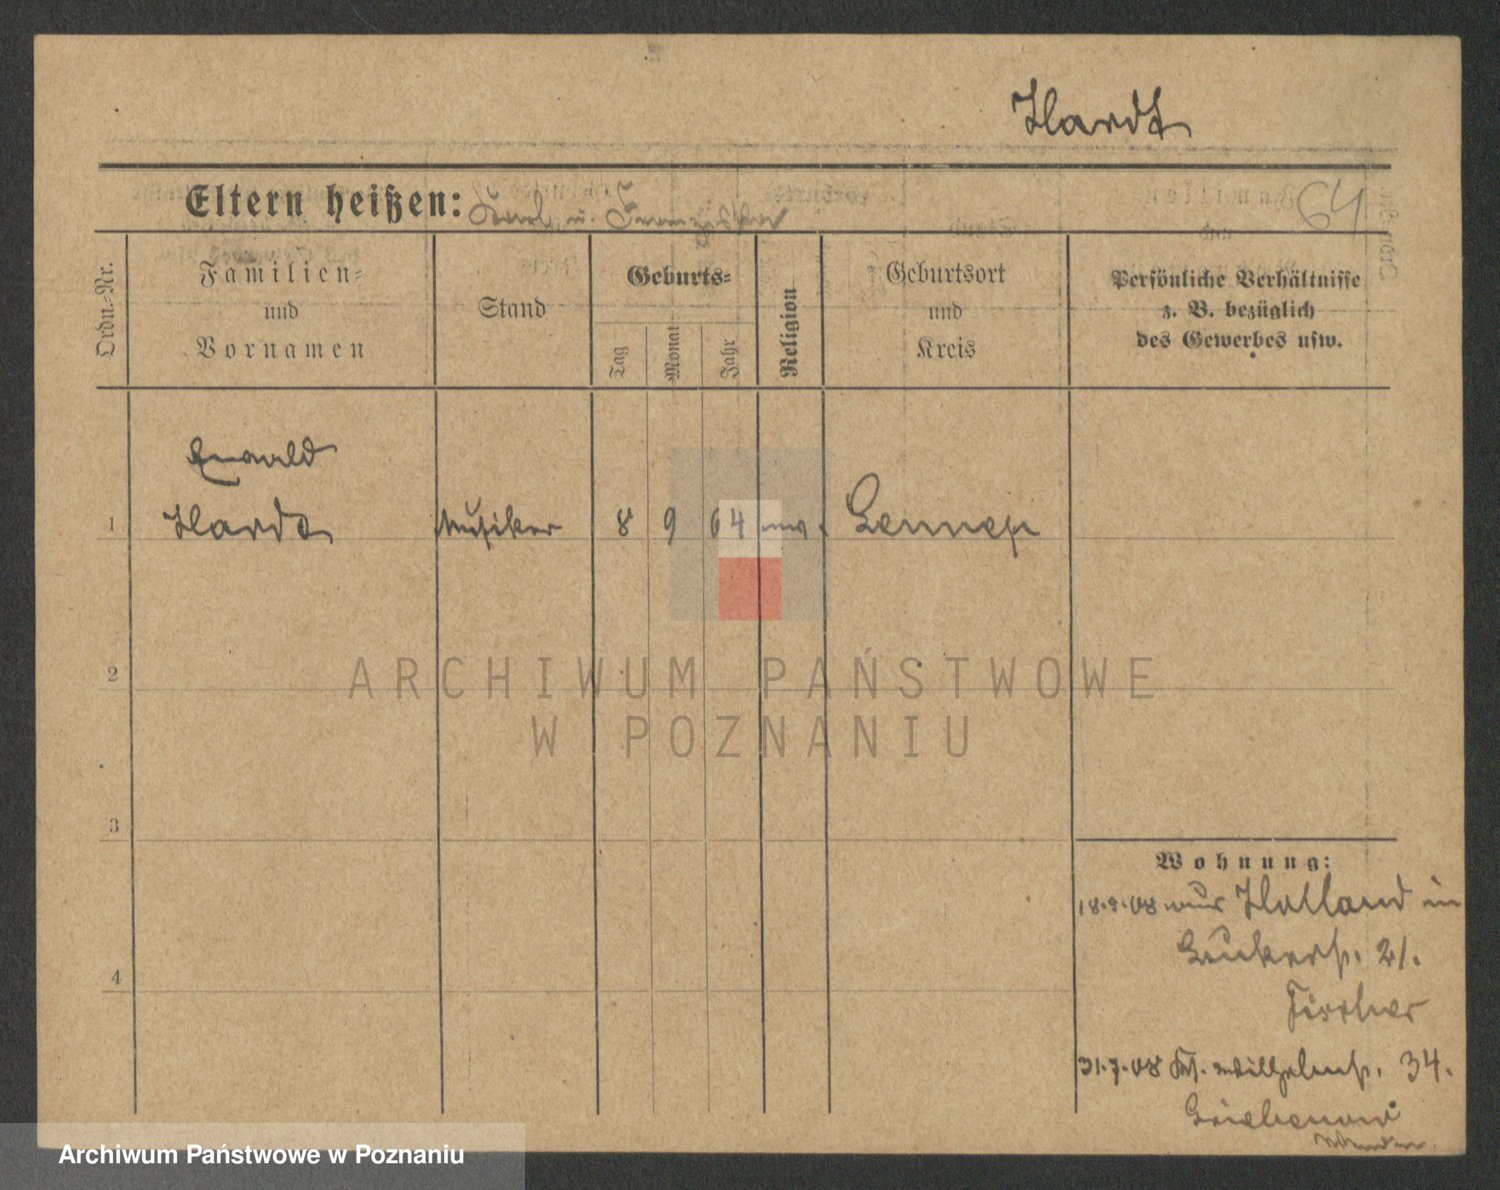 Hardt
Eltern heißen: Karl u. Franziska
64
Ordn.-Nr.
Familien-
und
Vornamen
Stand
Geburts-
Tag
Monat
Jahr
Religion
Geburtsort
und
Kreis
Persönliche Verhältnisse
z. B. bezüglich
des Gewerbes usw.
Ewald
1 Hardt Musiker 8 9 64 Lennep
2
3
4
Wohnung:
08 Holland in
21.
Fischer
31.7.08 Wilhelmstr. 34.
ARCHIWUM PAŃSTWOWE
W POZNANIU
Archiwum Państwowe w Poznaniu